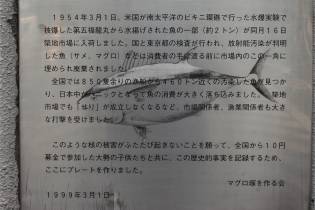 1954年3月1日、米国が南太平洋のビキニ環礁で行った水爆実験で
被爆した第五福竜丸から水揚げされた魚の一部(約2トン)が同月16日
築地市場に入荷しました。国と東京都の検査が行われ、放射能汚染が判明
した魚(サメ、マグロ)などは消費者の手に渡る前に市場内のこの一角に
埋められ廃棄されました。
全国では850隻余りの漁船から460トン近くの汚染した魚が見つか
り、日本中がパニックとなって魚の消費が大きく落ち込みました。築地
市場でも「せり」が成立しなくなるなど、市場関係者、漁業関係者も大き
な打撃を受けました。
このような核の被害がふたたび起きないことを願って、全国から10円
募金で参加した大勢の子供たちと共に、この歴史的事実を記録するため、
ここにプレートを作りました。
マグロ塚を作る会
1999年3月1日